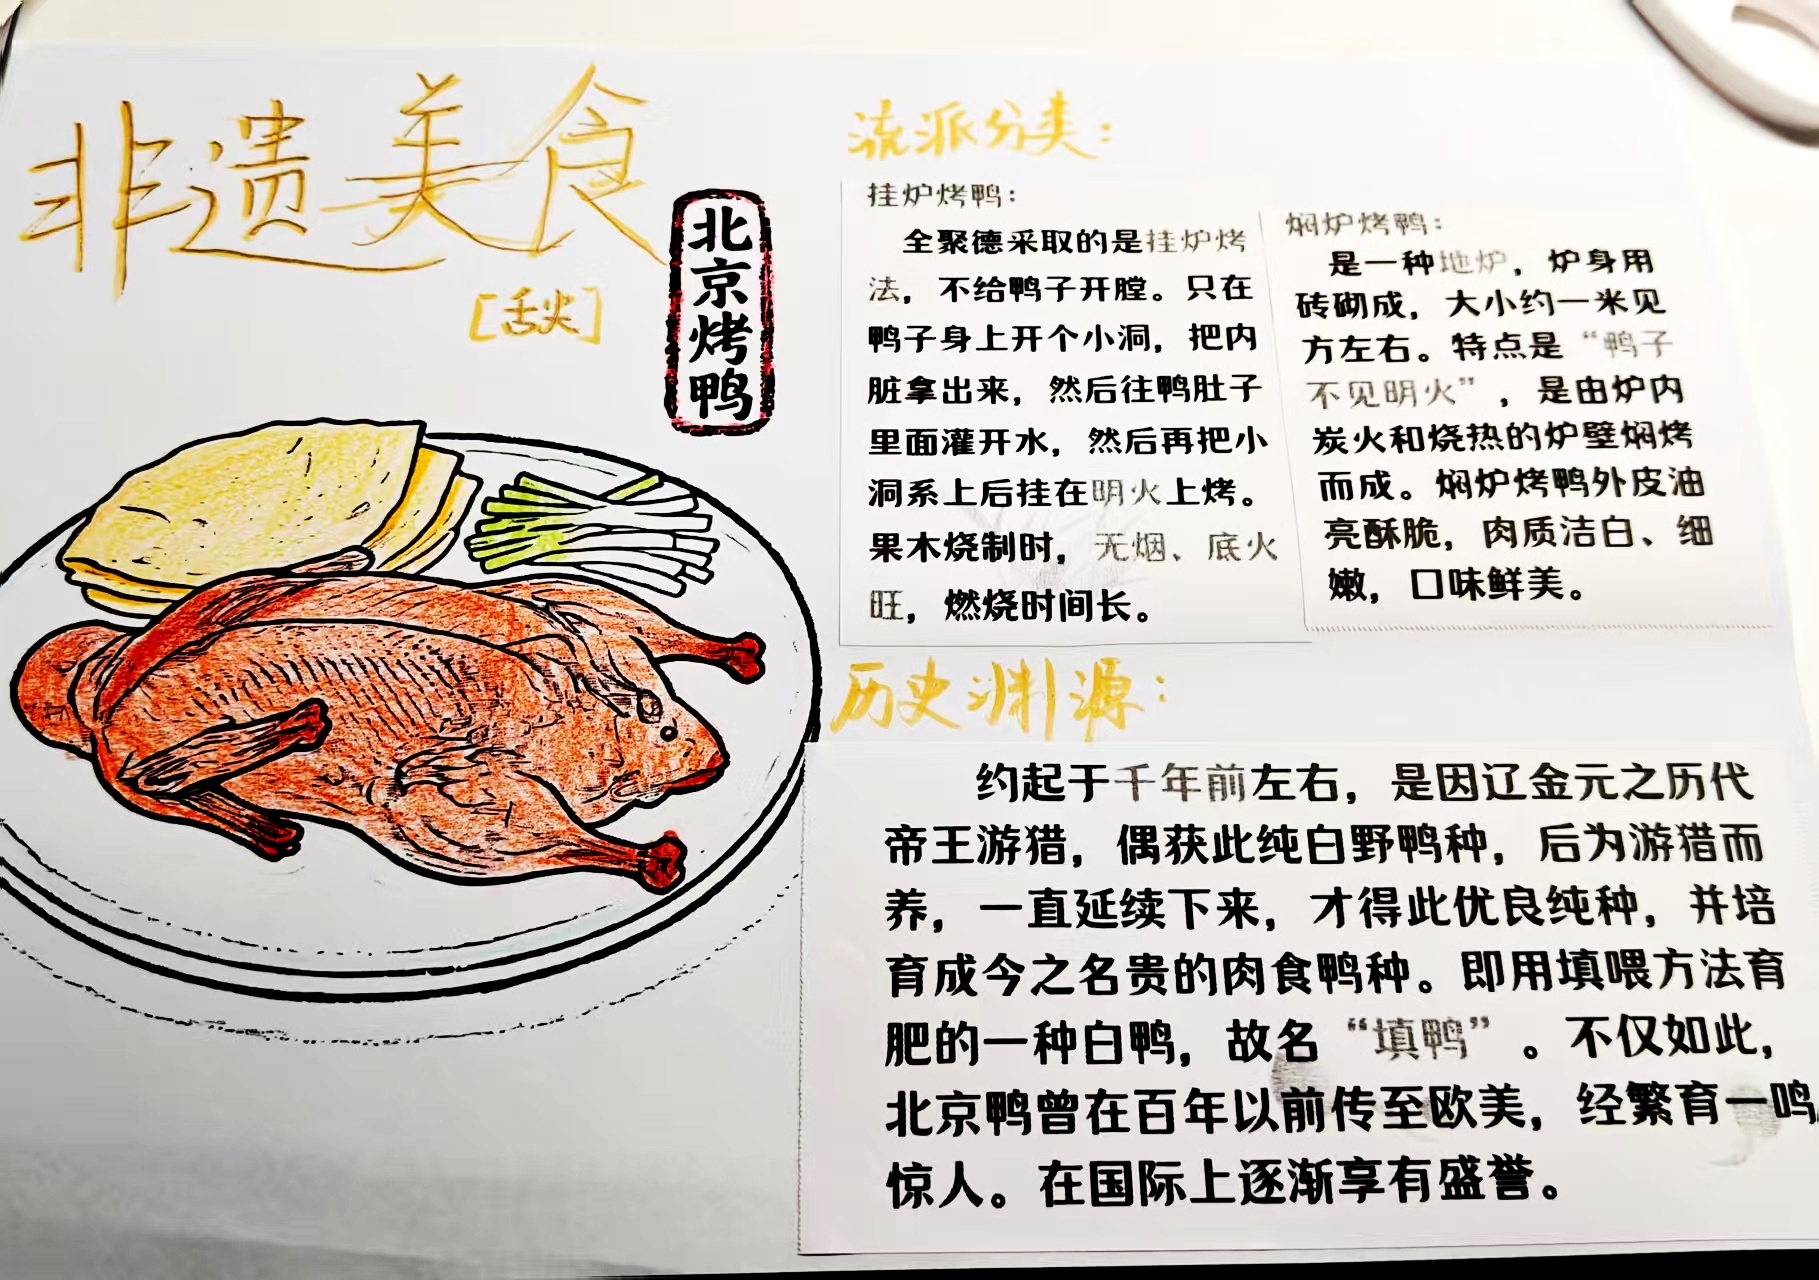 非遗美食
[舌尖]
北京烤鸭
流派分类：
挂炉烤鸭：
全聚德采取的是挂炉烤
法，不给鸭子开膛。只在
鸭子身上开个小洞，把内
脏拿出来，然后往鸭肚子
里面灌开水，然后再把小
洞系上后挂在明火上烤。
果木烧制时，无烟、底火
旺，燃烧时间长。
焖炉烤鸭：
是一种地炉，炉身用
砖砌成，大小约一米见
方左右。特点是“鸭子
不见明火”，是由炉内
炭火和烧热的炉壁焖烤
而成。焖炉烤鸭外皮油
亮酥脆，肉质洁白、细
嫩，口味鲜美。
历史渊源：
约起于千年前左右，是因辽金元之历代
帝王游猎，偶获此纯白野鸭种，后为游猎而
养，一直延续下来，才得此优良纯种，并培
育成今之名贵的肉食鸭种。即用填喂方法育
肥的一种白鸭，故名“填鸭”。不仅如此，
北京鸭曾在百年以前传至欧美，经繁育一鸣
惊人。在国际上逐渐享有盛誉。